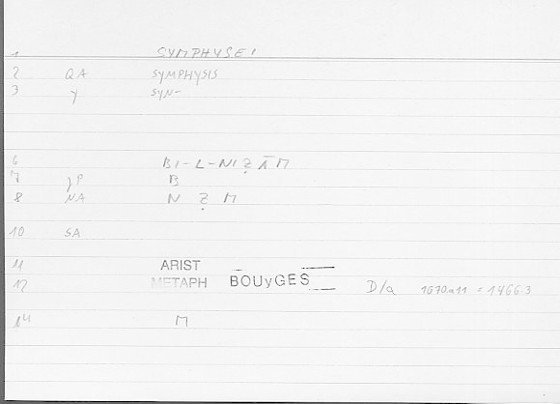 1 SYMPHYSEI
2 QA SYMPHYSIS
3 y SYN-
6 BI-L-NIẒĀM
7 yP B
8 NA N Ẓ M
10 SA
11 ARIST
12 METAPH BOUyGES D/a 1070a11 = 1466.3
14 M